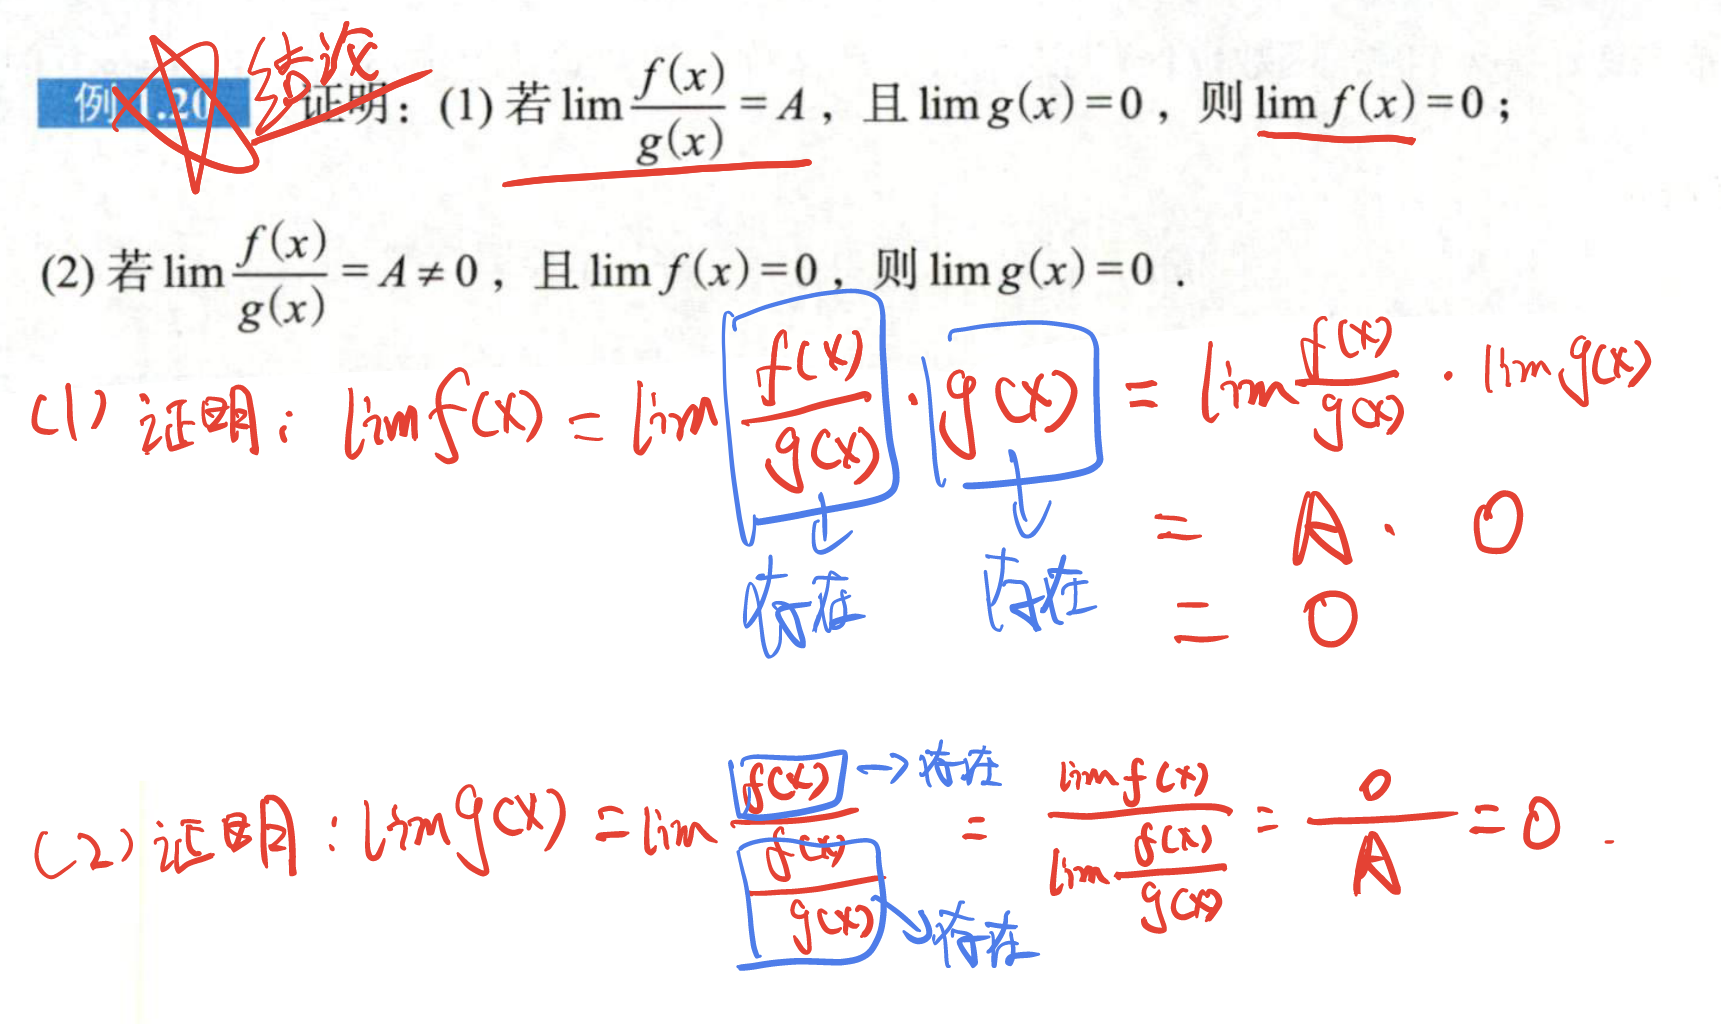 例1.20 结论 证明：(1) 若 lim f(x)/g(x) = A，且 lim g(x)=0，则 lim f(x)=0；
(2) 若 lim f(x)/g(x) = A ≠ 0，且 lim f(x)=0，则 lim g(x)=0．
(1) 证明：lim f(x) = lim f(x)/g(x) · g(x) = lim f(x)/g(x) · lim g(x)
= A · 0
存在 存在
= 0
(2) 证明：lim g(x) = lim f(x)/(f(x)/g(x)) = lim f(x)/(lim f(x)/g(x)) = 0/A = 0 .
→存在
存在